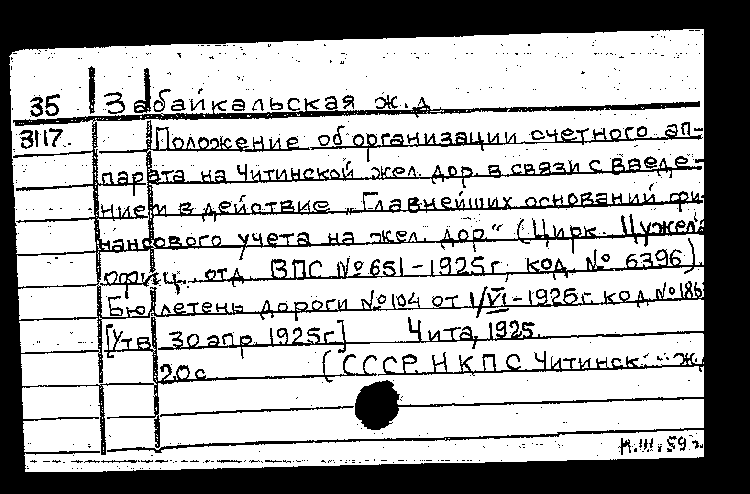 35 Забайкальская ж.д.
3117 Положение об организации счетного ап-
парата на Читинской жел. дор. в связи с введе-
нием в действие „Главнейших оснований фи-
нансового учета на жел. дор." (Цирк. Цужел'а
офиц. отд. ВПС № 651-1925г, код. № 6396).
Бюллетень дороги № 104 от 1/VI-1925г. код. № 186
[Утв. 30 апр. 1925г] Чита, 1925.
20 с (СССР. НКПС Читинск. ж.